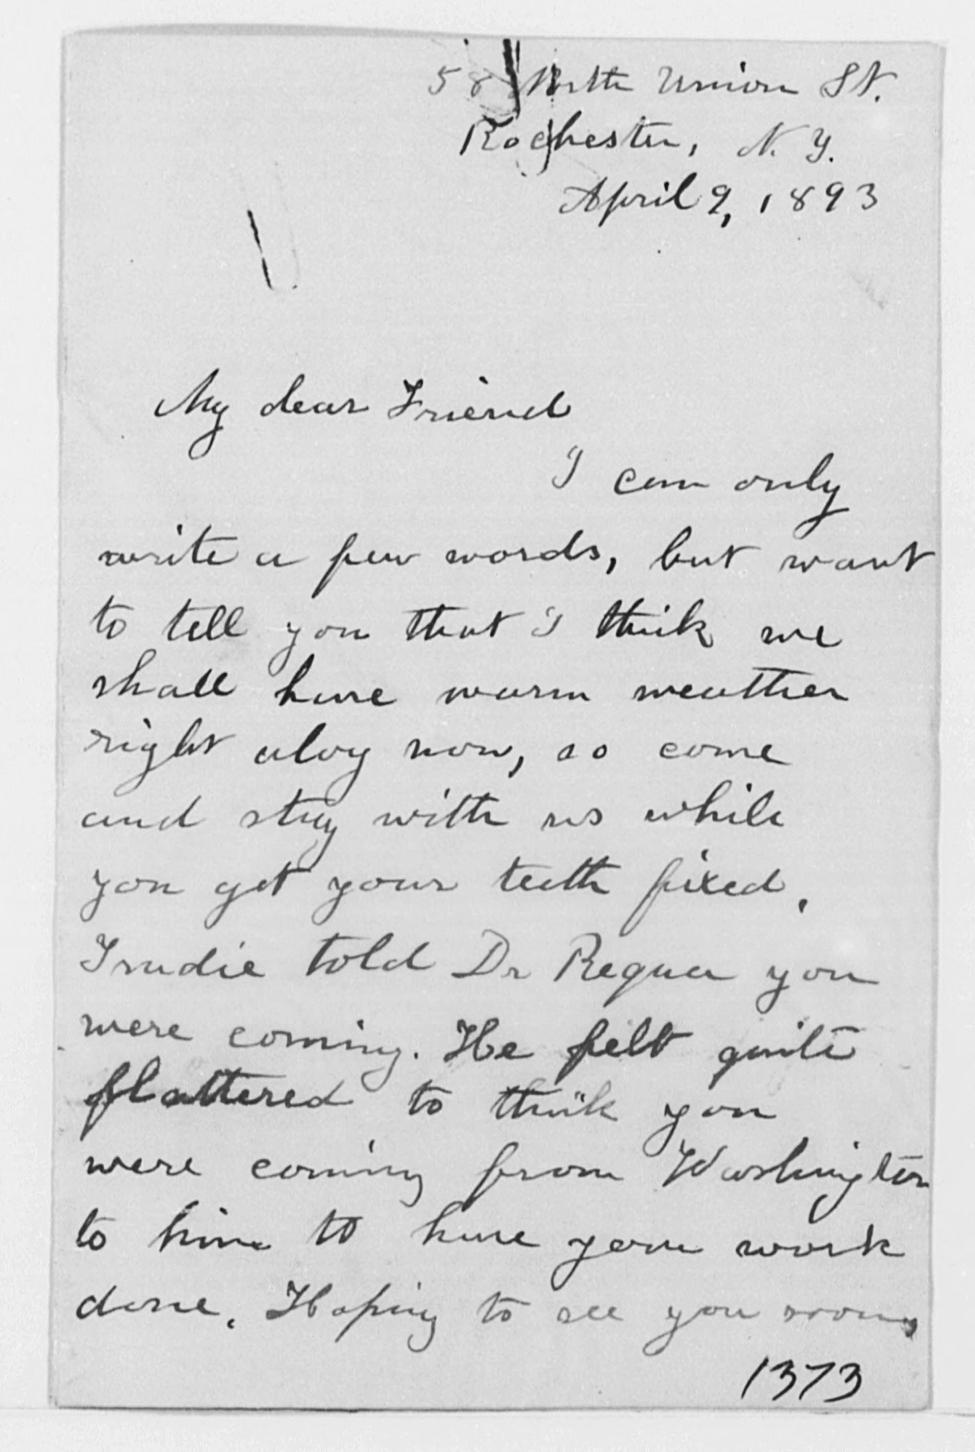 58 North Union St.
Rochester, N. Y.
April 9, 1893
My dear Friend
I can only
write a few words, but want
to tell you that I think we
shall have warm weather
right alog now, so come
and stay with us while
you get your teeth fixed.
Trudie told Dr Requa you
were coming. He felt quite
flattered to think you
were coming from Washington
to him to have your work
done. Hoping to see you soon,
1373